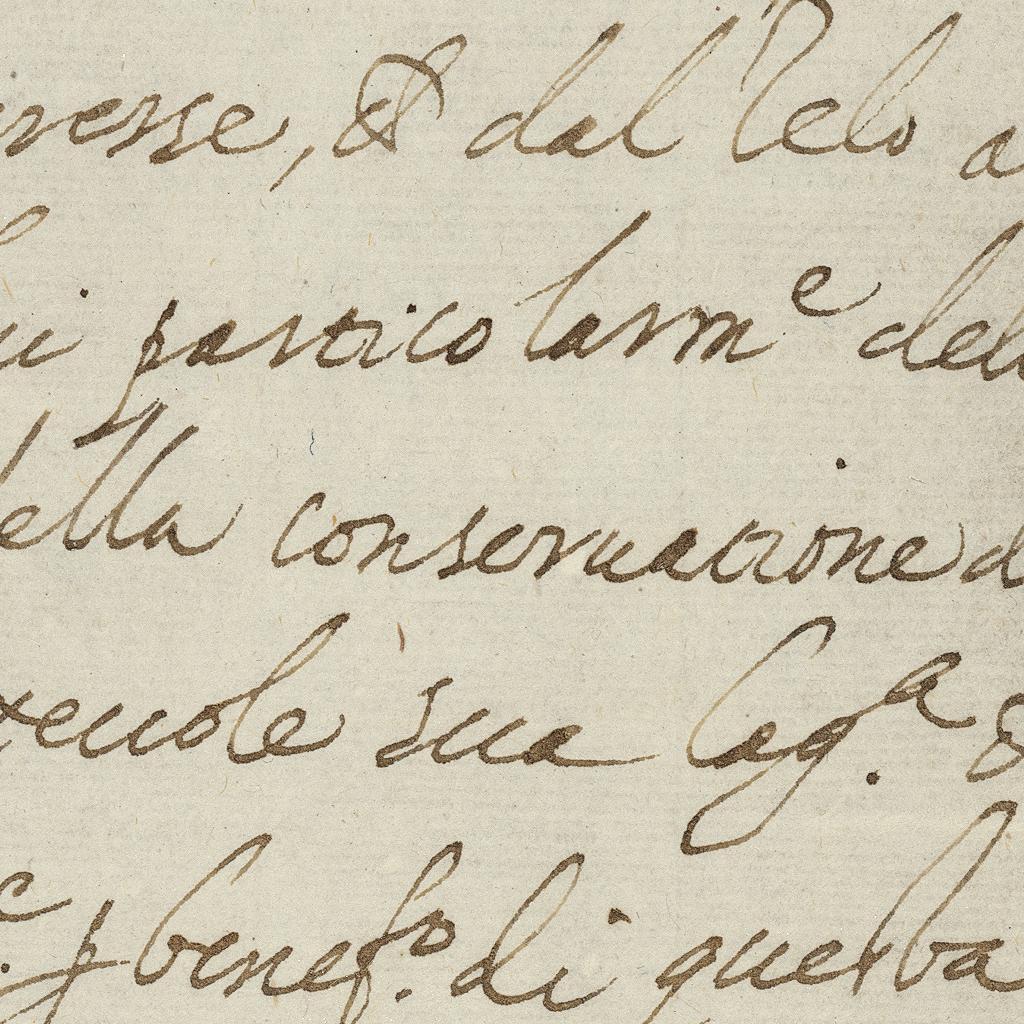 uerse, & dal Zelo a
ui particolarm^e del
della conseruatione d
reuole sua lag^a. &
p benef^o. di questa